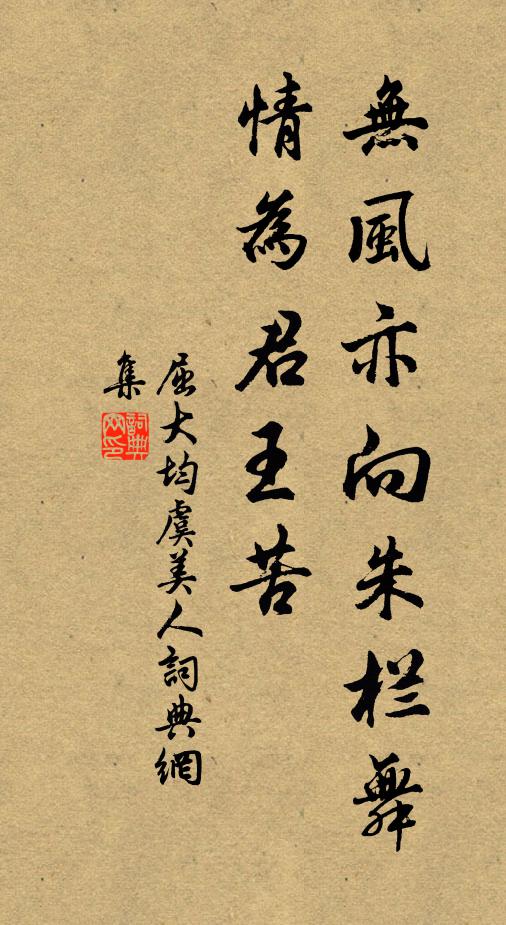 無風亦向朱栏舞
情為君王苦
屈大均虞美人詞典網
集
詞典
网印